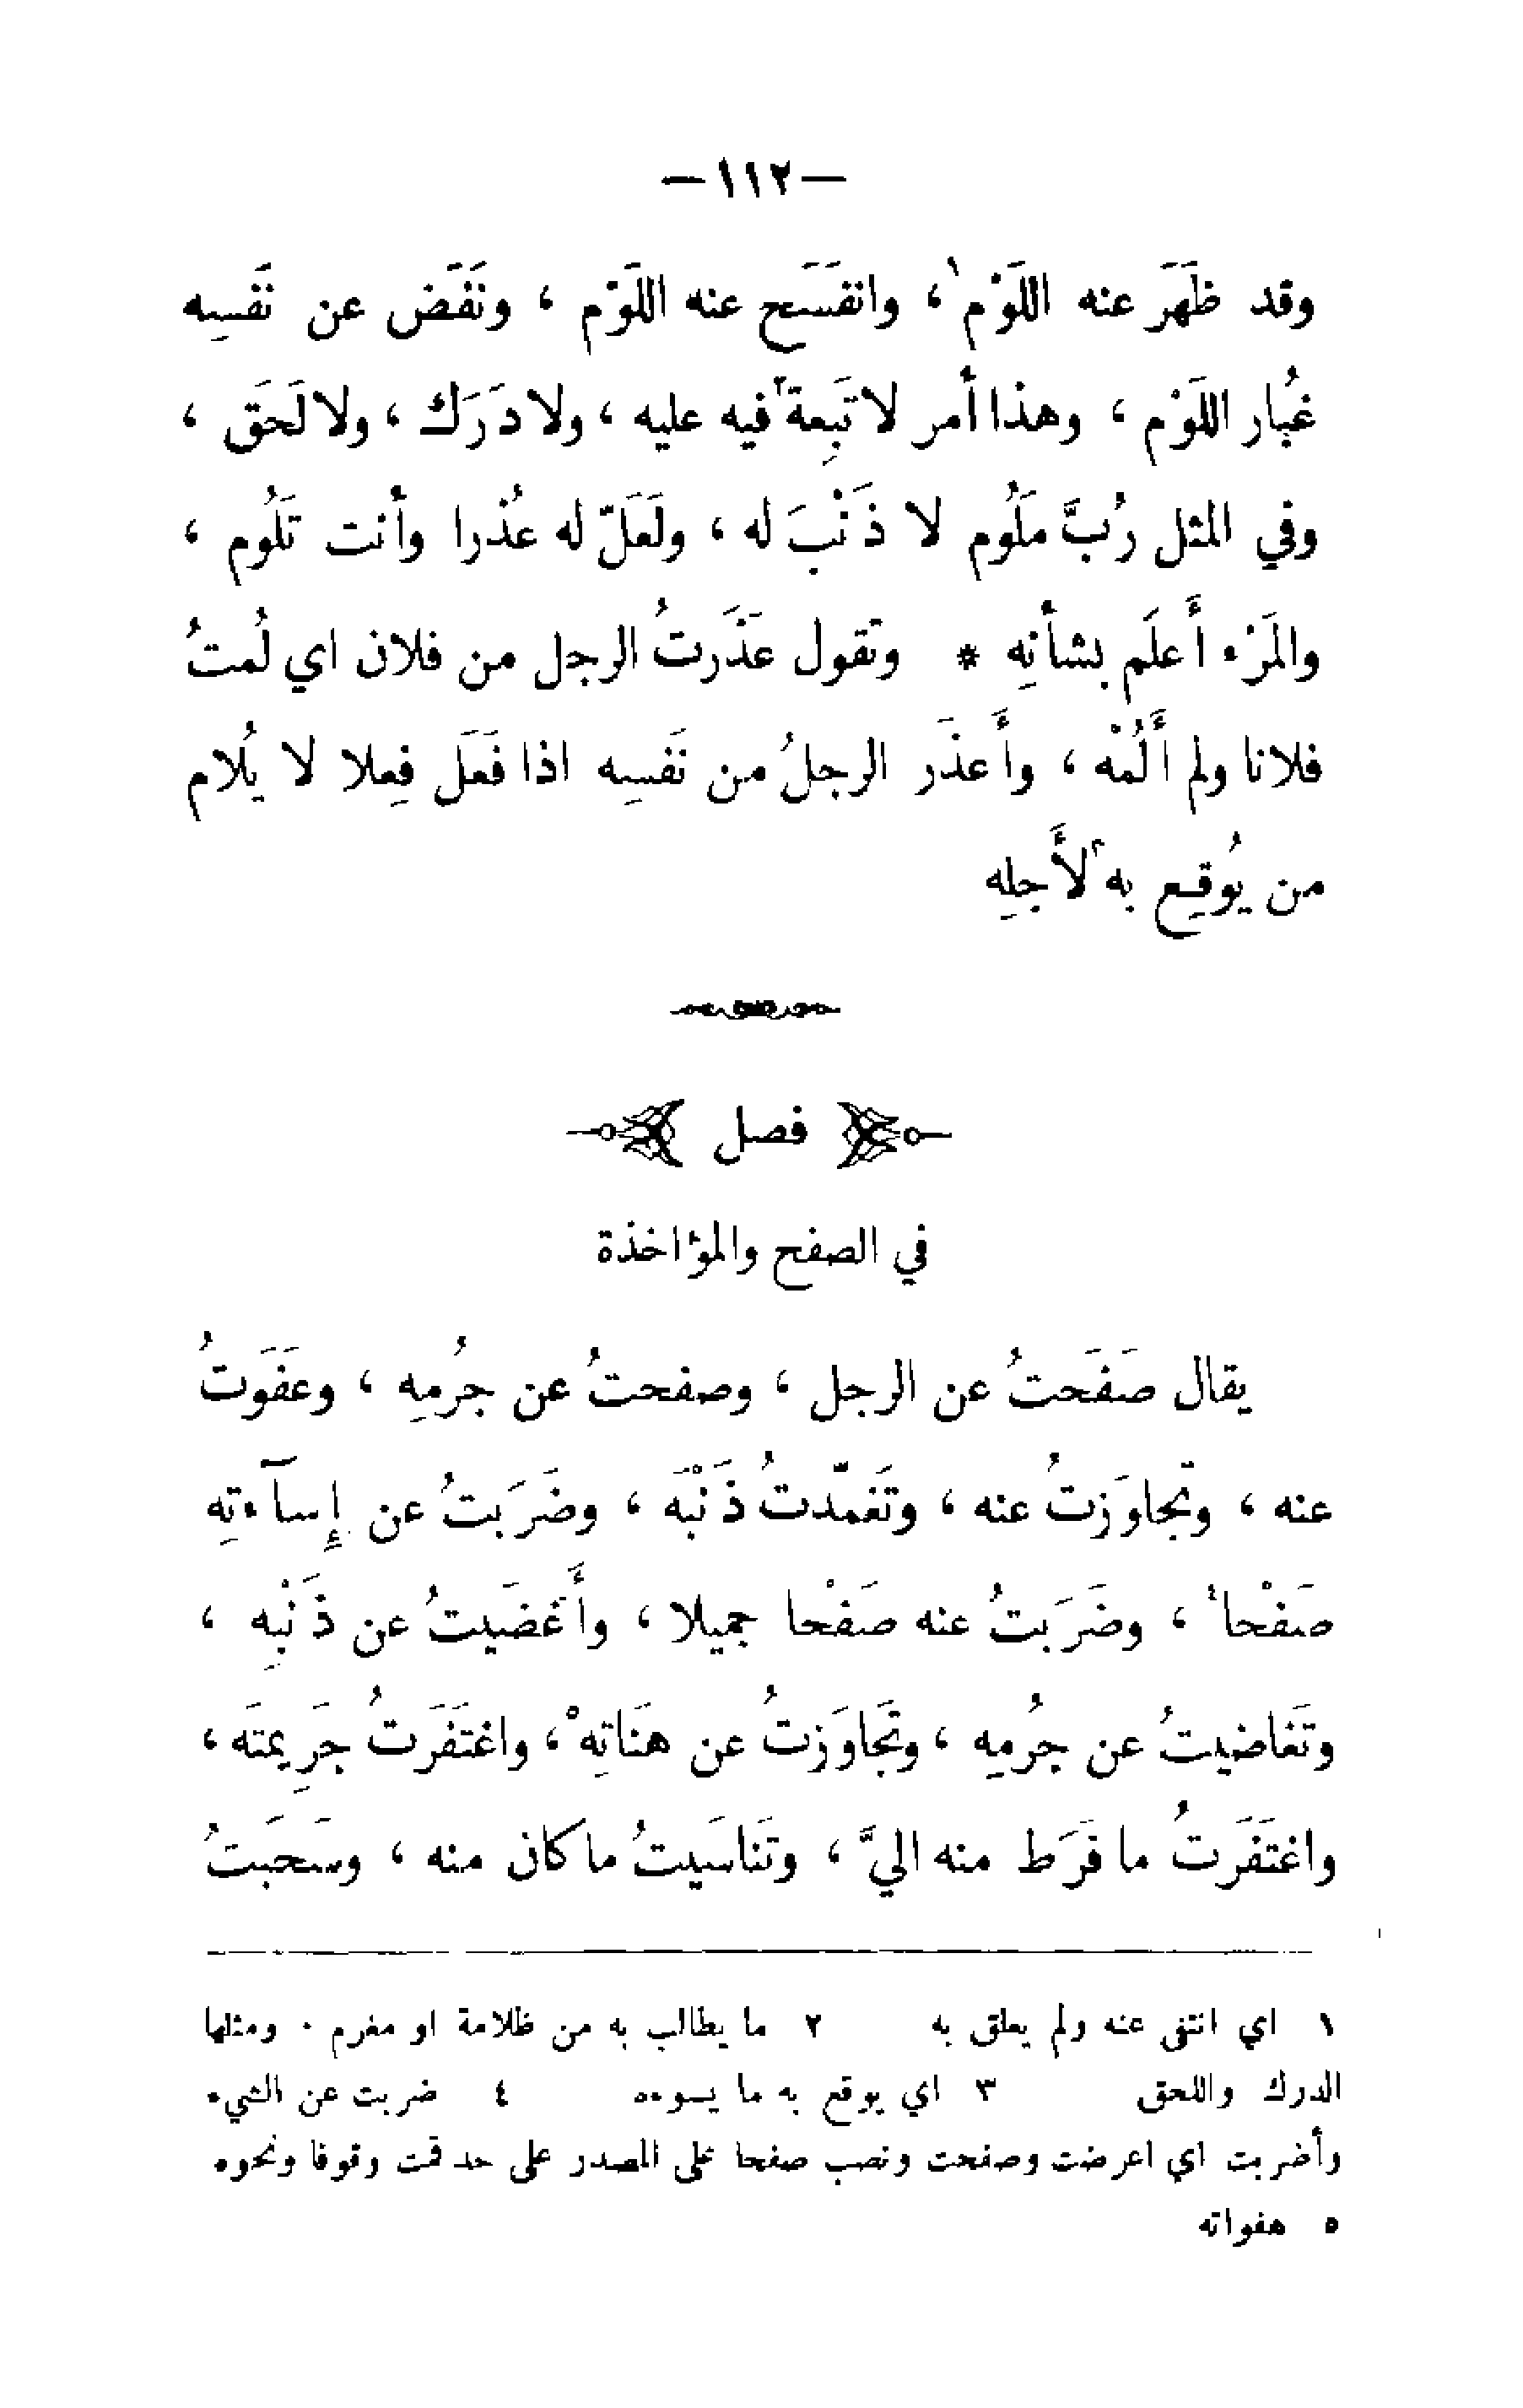 — ١١٢ —
وقد ظَهَر عنه اللَوْم١ ، وانفَسَح عنه اللَوْم ، ونَفَض عن نَفسِه
غُبار اللَوْم ، وهذا أمر لا تَبِعة٢ فيه عليه ، ولا دَرَك ، ولا لَحَق ،
وفي المثل رُبَّ مَلُوم لا ذَنْبَ له ، ولَعَلّ له عُذرا وأنت تَلُوم ،
والمَرْء أَعلَم بشأنِه * وتقول عَذَرتُ الرجل من فلان اي لُمتُ
فلانا ولم أَلُمْه ، وأَعذَر الرجلُ من نَفسِه اذا فَعَل فِعلا لا يُلام
من يُوقِع به٣ لأَجلِه
فصل
في الصفح والمؤاخذة
يقال صَفَحتُ عن الرجل ، وصفحتُ عن جُرمِه ، وعَفَوتُ
عنه ، وتَجاوَزتُ عنه ، وتَغمّدتُ ذَنْبَه ، وضَرَبتُ عن إِسآءتِه
صَفْحا٤ ، وضَرَبتُ عنه صَفْحا جميلا ، وأَغضَيتُ عن ذَنْبِه ،
وتَغاضيتُ عن جُرمِه ، وتَجاوَزتُ عن هَنَاتِه٥ ، واغتَفَرتُ جَرِيمتَه ،
واغتَفَرتُ ما فَرَط منه اليَّ ، وتَناسَيتُ ما كان منه ، وسَحَبتُ
١ اي انتفى عنه ولم يعلق به ٢ ما يطالب به من ظلامة او مغرم . ومثلها
الدرك واللحق ٣ اي يوقع به ما يسوءه ٤ ضربت عن الشيء
وأضربت اي اعرضت وصفحت ونصب صفحا على المصدر على حد قمت وقوفا ونحوه
٥ هفواته